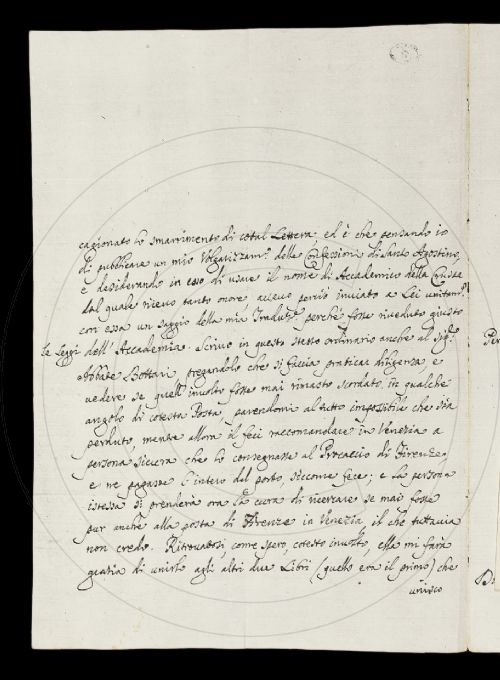 cagionato lo smarrimento di cotal Lettera; ed è che pensando io
di pubblicare un mio Volgarizzam.to delle Confessioni di Santo Agostino,
e desiderando in esso di usare il nome di Accademico della Crusca
dal quale ricevo tanto onore, aveva perciò inviato a Lei unitam.e
con essa un saggio della mia Traduz.e perchè fosse riveduto giusto
le Leggi dell'Accademia. Scrivo in questo stesso ordinario anche al Sig.r
Abbate Bottari pregandolo che si faccia praticar diligenza e
vedere se quell'involto fosse mai rimasto scordato in qualche
angolo di cotesta Posta, parendomi al tutto impossibile che sia
perduto, mentre allora il feci raccomandare in Venezia a
persona sicura che lo consegnasse al Procaccio di Firenze,
e ne pagasse l'intero del porto, siccome fece; e la persona
istessa si prenderà ora la cura di ricercare se mai fosse
pur anche alla posta di Firenze in Venezia, il che tuttavia
non credo. Ritrovatosi, come spero, cotesto involto, ella mi farà
grazia di unirlo agli altri due Libri (quello era il primo) che
unisco